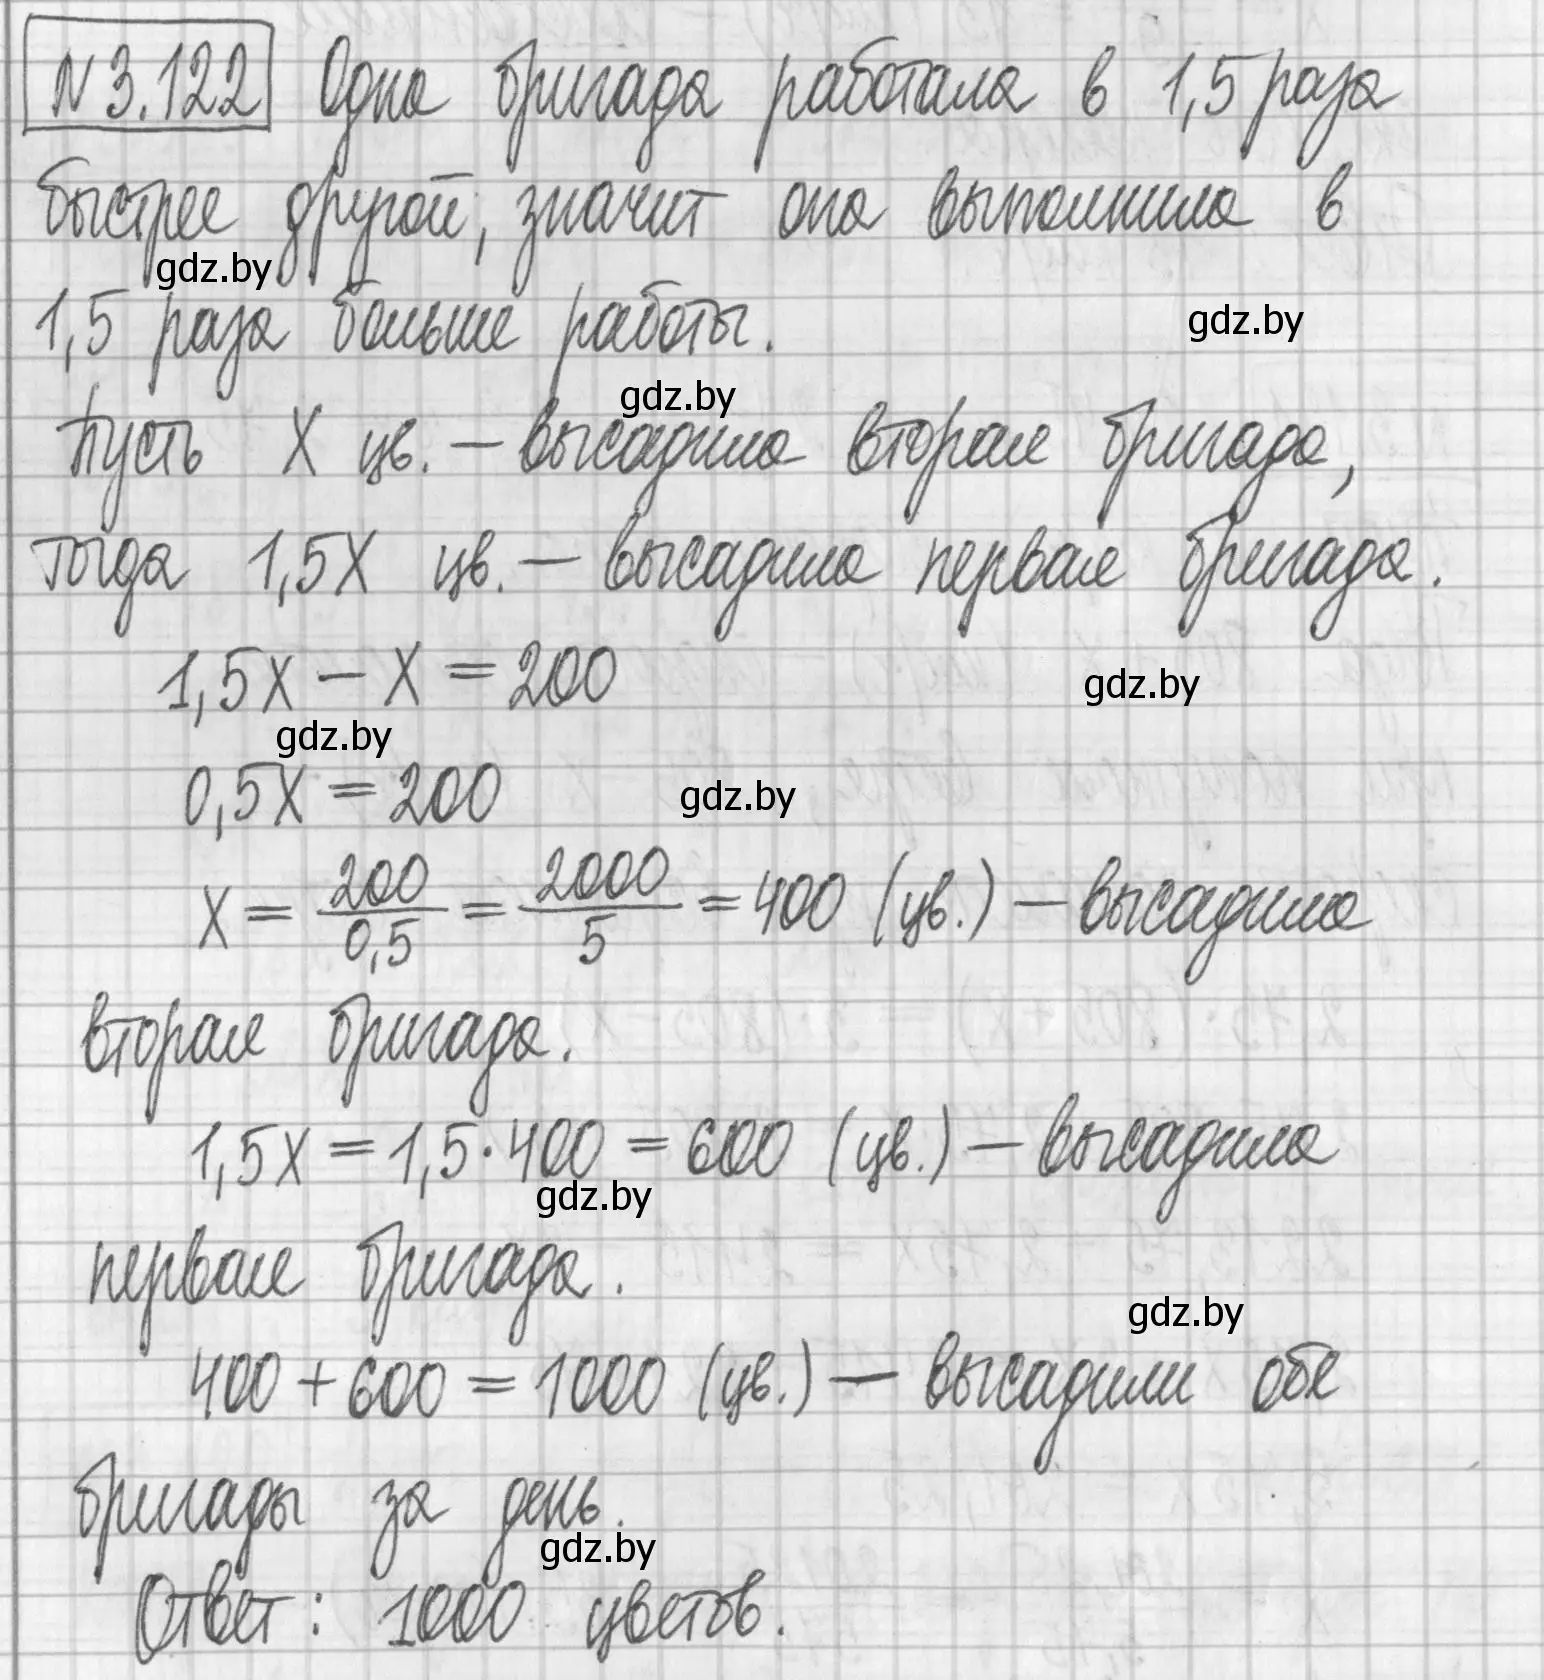 N 3.122 Одна бригада работала в 1,5 раза
быстрее другой, значит она выполнила в
gdz.by
1,5 раза больше работы.
gdz.by
gdz.by
Пусть X цв. – высадила вторая бригада,
тогда 1,5X цв. – высадила первая бригада.
1,5X – X = 200
gdz.by
gdz.by
0,5X = 200
gdz.by
X = 200/0,5 = 2000/5 = 400 (цв.) – высадила
вторая бригада.
1,5X = 1,5 · 400 = 600 (цв.) – высадила
gdz.by
первая бригада.
gdz.by
400 + 600 = 1000 (цв.) – высадили обе
бригады за день.
gdz.by
Ответ: 1000 цветов.